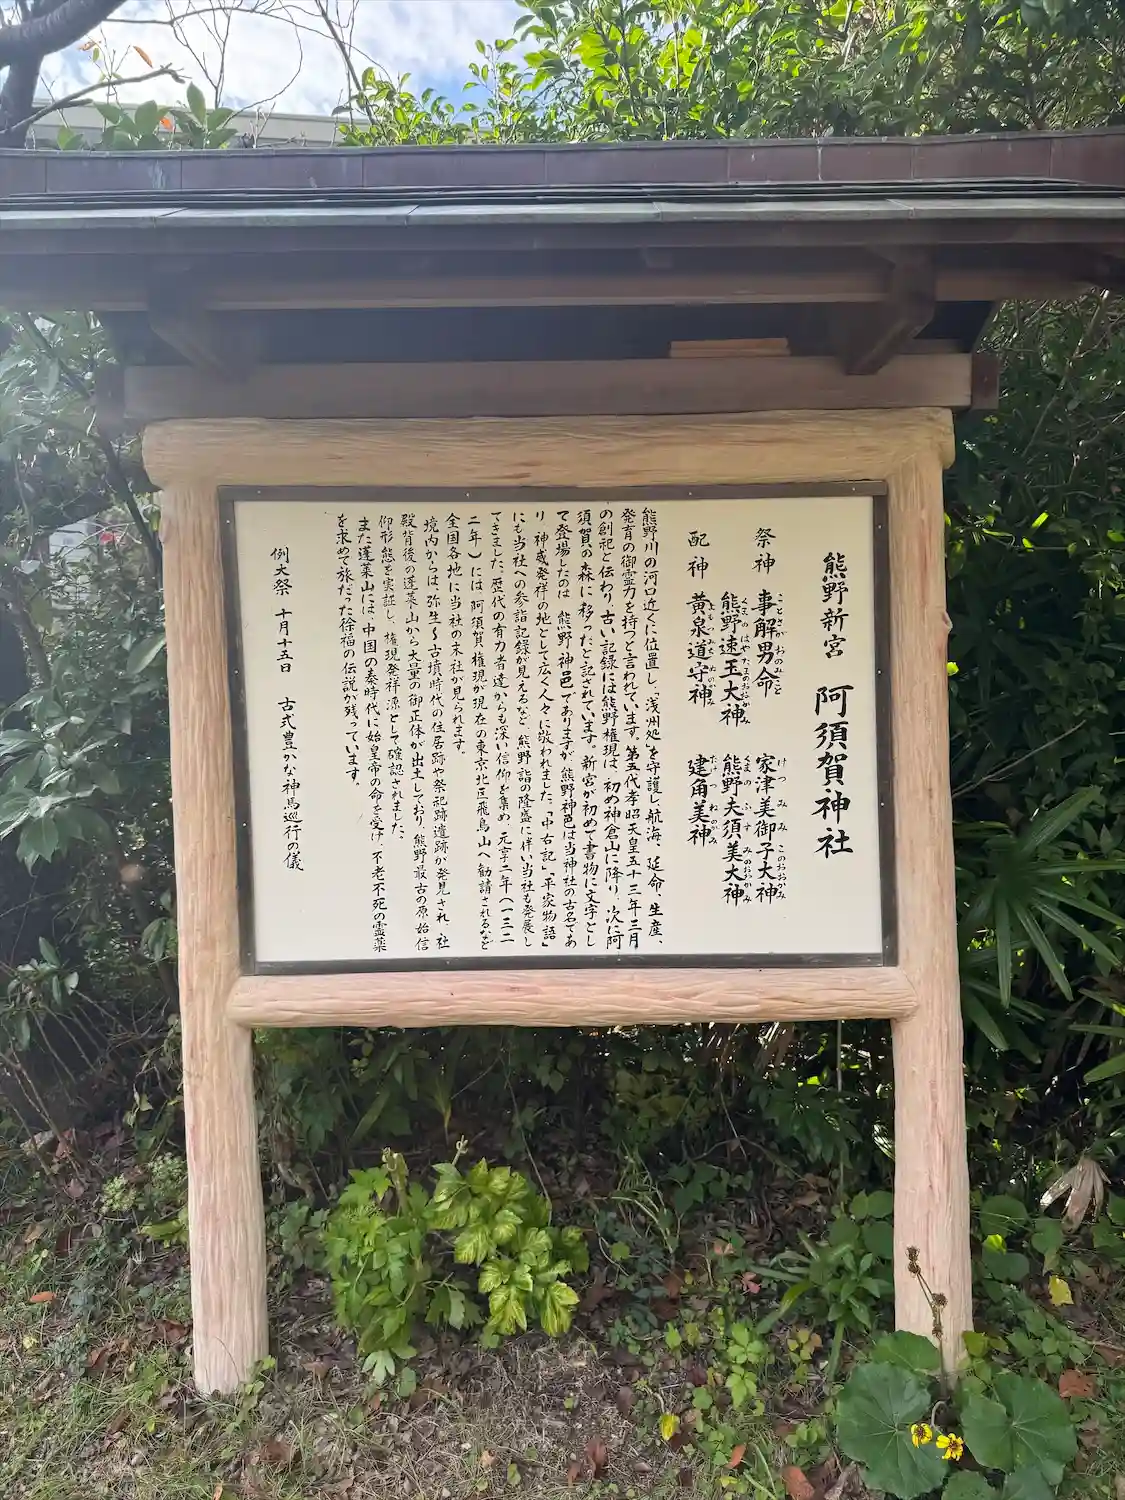 熊野新宮 阿須賀神社
祭神 事解男命 家津美御子大神
ことさかおのみこと けつみみこのおおかみ
熊野速玉大神 熊野夫須美大神
くまのはやたまのおおかみ くまのふすみのおおかみ
配神 黄泉道守神 建角美神
よもつちもりのかみ たけつねのかみ
熊野川の河口近くに位置し、「浅州処」を守護し、航海、延命、生産、
発育の御霊力を持つと言われています。第五代孝昭天皇五十三年三月
の創祀と伝わり、古い記録には熊野権現は、初め神倉山に降り、次に阿
須賀の森に移ったと記されています。新宮が初めて書物に文字とし
て登場したのは、熊野神邑でありますが、熊野神邑は当神社の古名であ
り、神威発祥の地として広く人々に敬われました。「中右記」「平家物語」
にも当社への参詣記録が見えるなど、熊野詣の隆盛に伴い当社も発展し
てきました。歴代の有力者達からも深い信仰を集め、元亨二年(一三二
二年)には、阿須賀権現が現在の東京北区飛鳥山へ勧請されるなど
全国各地に当社の末社が見られます。
境内からは、弥生〜古墳時代の住居跡や祭祀遺跡が発見され、社
殿背後の蓬莱山から大量の御正体が出土しており、熊野最古の原始信
仰形態を実証し、権現発祥源として確認されました。
また蓬莱山には、中国の秦時代に始皇帝の命を受け、不老不死の霊薬
を求めて旅だった徐福の伝説が残っています。
例大祭 十月十五日 古式豊かな神馬巡行の儀